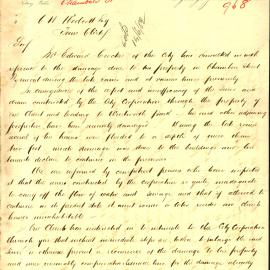 Chambers St
968
C H Woolcott Esq
Town Clerk
Sir
Mr Edward Crocker of this City has consulted us with
reference to the damage done to his property in Chambers Street
during the late rains and at various times previously
In consequence of the defect and insufficiency of the Sewer and
drain constructed by the City Corporation through the property of
our Client and leading to Wentworth Park he and other adjoining
properties have been seriously damaged. During the late rains
several of the houses were flooded to a depth of more than
two feet much damage was done to the buildings and his
tenants decline to continue in the premises
We are informed by competent persons who have inspected
it that the sewer constructed by the Corporation is quite inadequate
to carry off the flow of water and sewage and that if allowed to
continue in its present state it must sooner or later render our client's
houses uninhabitable
Our Client has instructed us to intimate to the City Corporation
through you that unless immediate steps are taken to enlarge the said
Sewer to obviate forever a recurrence of the damage to his property
and give reasonable compensation for the damage already